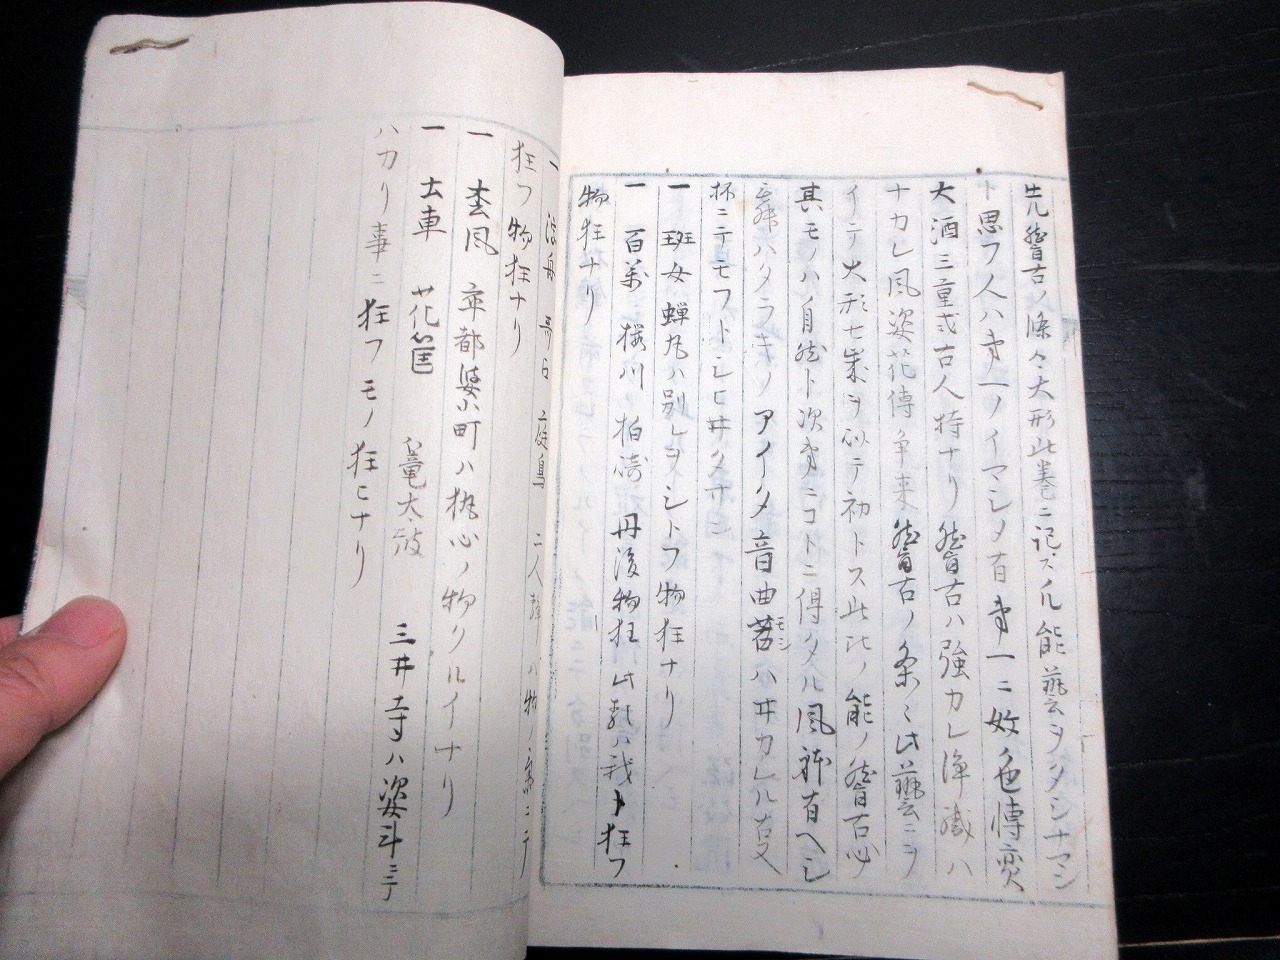 先稽古ノ條々大形此巻ニ記スル能藝ヲタシナマン
ト思フ人ハ第一ノイマシメ有第一ニ好色博奕
大酒三重戒古人持ナリ稽古ハ強カレ浄識ハ
ナカレ風姿花傳年来稽古ノ条々ニ此藝ニヲ
イテ大形七歳ヲ以テ初トス此比ノ能ノ稽古必
其モノハ自然ト次第ニコトニ得タル風躰有ヘシ
舞ハタラキノアイタ音曲若モシハヰカレル
杯ニテモフトシヒヰタサン
一 班女蝉丸ハ別レヲシトフ物狂ナリ
一 百萬 桜川 柏崎 丹後物狂 此類ハ我ト狂フ
物狂ナリ
一 庭鳥 二人 ハ物ノ ニテ
狂フ物狂ナリ
一 松風 卒都婆小町ハ執心ノ物クルイナリ
一 土車 花筐 篭太皷 三井寺ハ姿斗ニテ
ハカリ事ニ狂フモノ狂ヒナリ